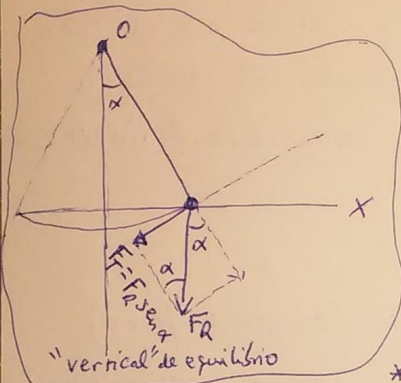 O
α
X
α
α
F_T = F_R sen α
F_R
"vertical" de equilibrio
*